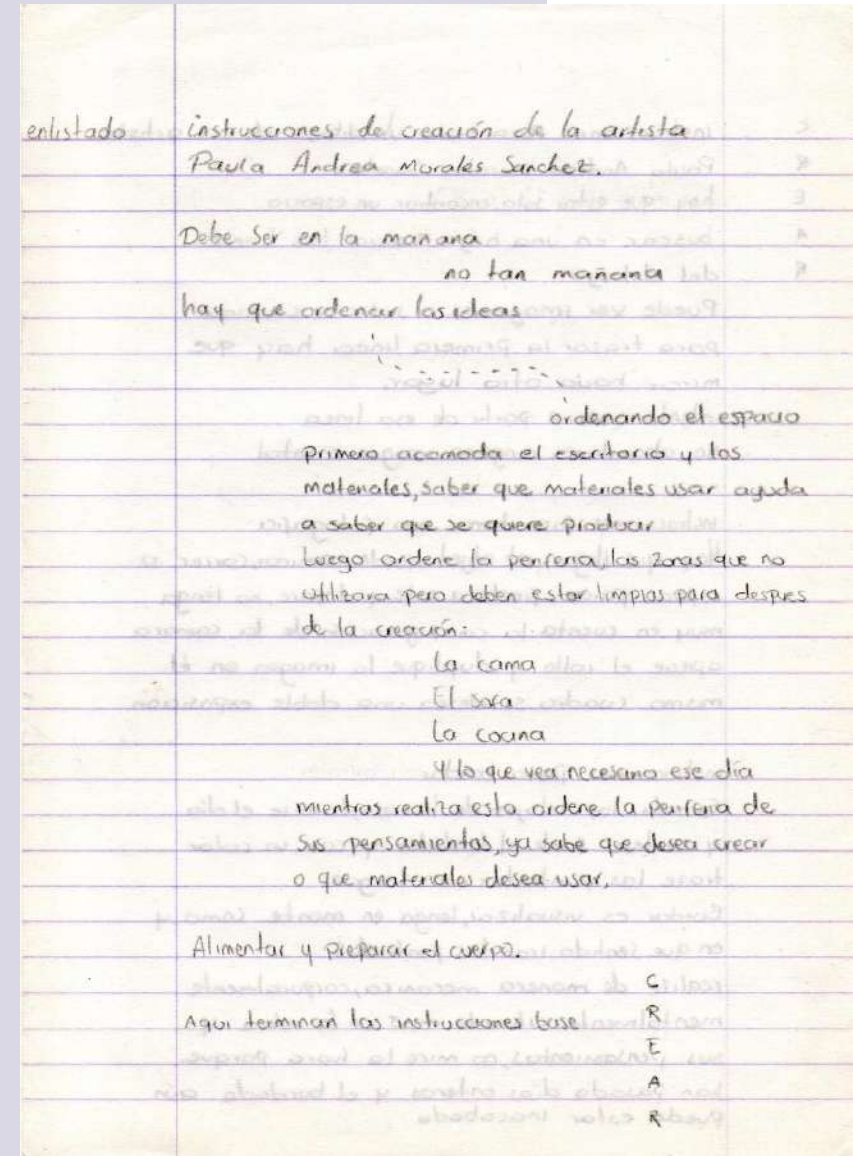 enlistado instrucciones de creación de la artista
Paula Andrea Morales Sanchez.
Debe Ser en la mañana
no tan mañana
hay que ordenar las ideas
ordenando el espacio
primero acomoda el escritorio y los
materiales, saber que materiales usar ayuda
a saber que se quiere producir
Luego ordene la periferia, las zonas que no
utilizara pero deben estar limpias para despues
de la creación:
La cama
El sofa
La cocina
Y lo que vea necesario ese día
mientras realiza esto, ordene la periferia de
sus pensamientos, ya sabe que desea crear
o que materiales desea usar.
Alimentar y preparar el cuerpo.
Aqui terminan las instrucciones base
C
R
E
A
R